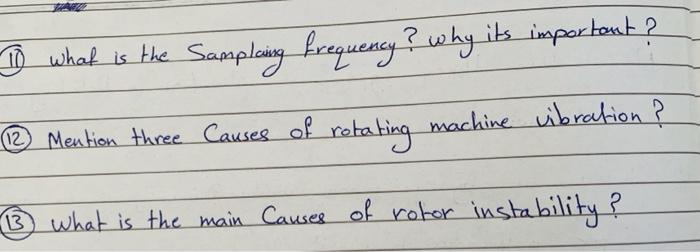 11 what is the Samplaing frequency? why its important?
12 Mention three Causes of rotating machine vibration?
13 what is the main Causes of rotor instability?